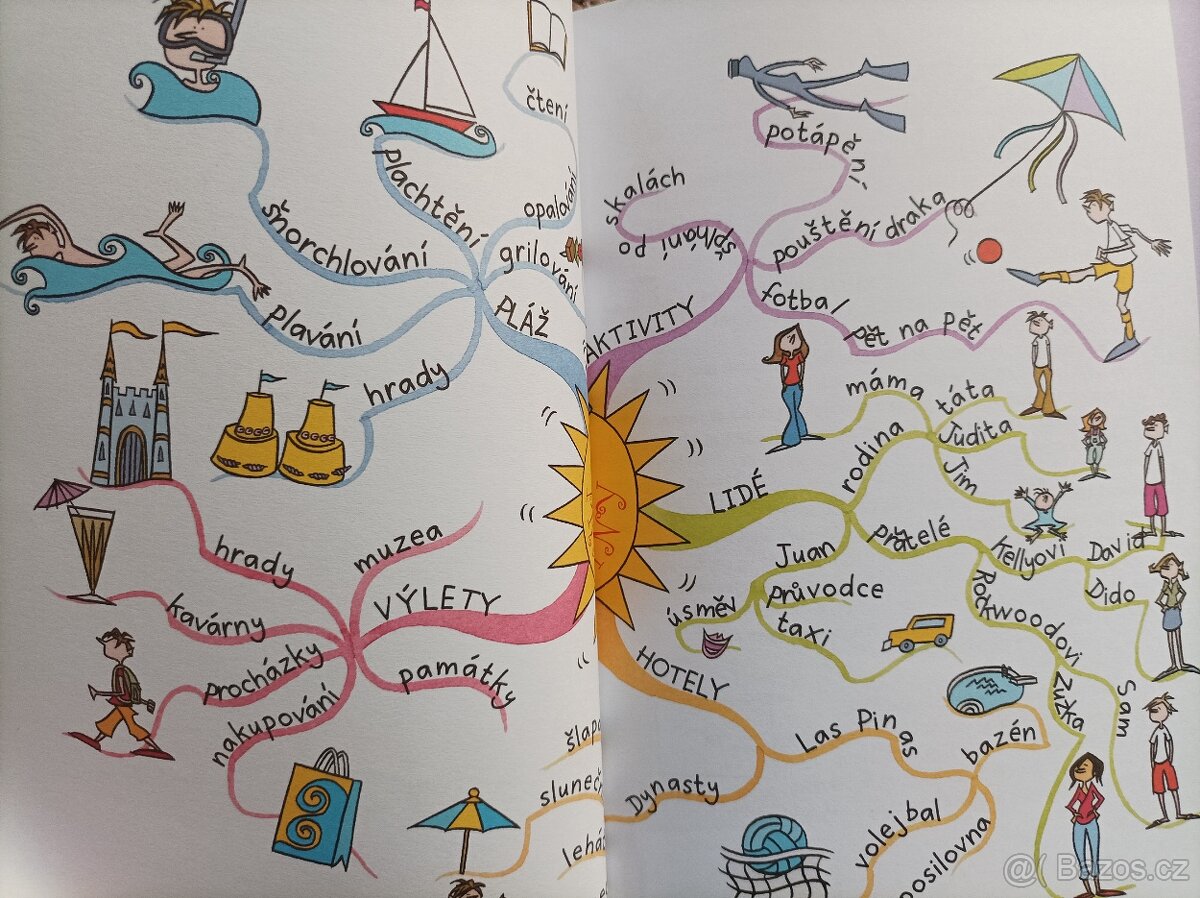 čtení
plachtění
opalování
šňorchlování
grilování
plavání
PLÁŽ
hrady
hrady
muzea
kavárny
VÝLETY
procházky
památky
nakupování
potápění
skalách
šplhání po
pouštění draka
fotbal
pět na pět
AKTIVITY
máma
táta
rodina
Judita
Jim
LIDÉ
přátelé
Kellyovi
David
Dido
Juan
průvodce
úsměv
taxi
Rockwoodovi
Zuzka
Sam
HOTELY
Las Pinas
bazén
Dynasty
volejbal
posilovna
šlapa
sluneč
lehá
Bazos.cz